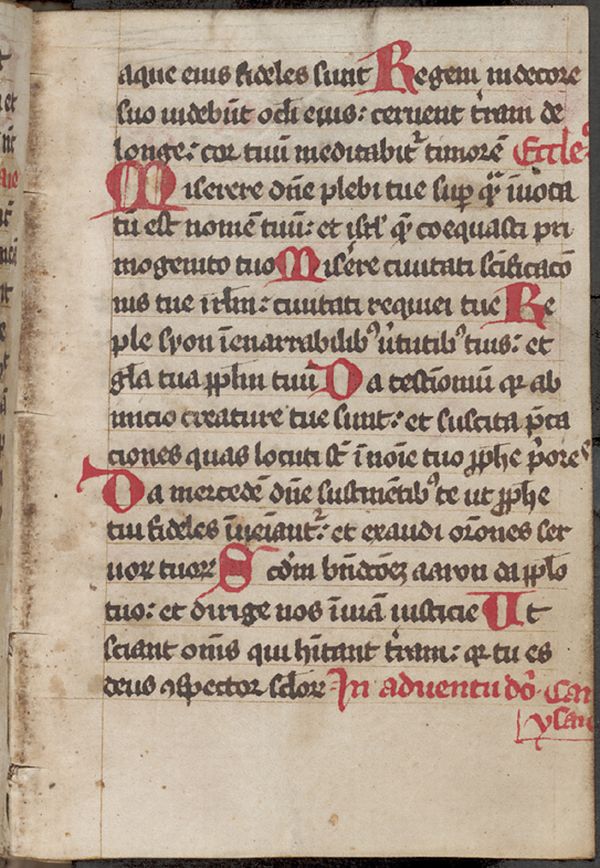 aque eius fideles sunt Regem in decore
suo uidebūt ocli eius: cernent t̄ram de
longe: cor tuū meditabit᷑ timorē Eccleꝰ
Miserere dn̄e plebi tue sup qᷓ īuoca
tū est nomē tuū: et isrl̄ qᷓ coequasti pri
mogenito tuo Misēre ciuitati sc̄ificac̄o
nis tue ir̄lm: ciuitati requiei tue Re
ple syon īenarrabilibꝰ u̓tutibꝰ tuis: et
gl̄a tua ppl̄m tuū Da testīoniū qꝛ ab
inicio creature tue sunt: et suscita p̄ca
ciones quas locuti st̄ ī noīe tuo ꝓphe p̓ores
Da mercedē dn̄e sustinētibꝰ te ut ꝓphe
tui fideles īueiant᷑: et exaudi or̄ones ser
uoꝝ tuoꝝ Scd̄m bn̄dcōeʒ aaron da ppl̄o
tuo: et dirige nos ī uiā iusticie Ut
sciant om̄s qui hītant t̄ram: qꝛ tu es
deus ꝯspector sclōꝝ In aduentu dō. Can
ysaie